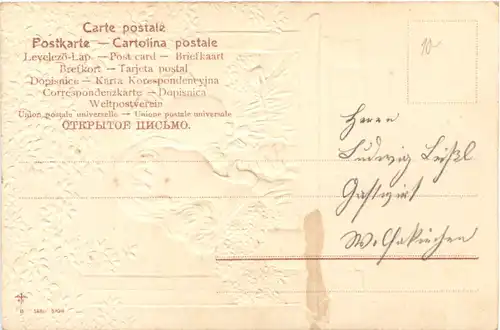 Carte postale
Postkarte — Cartolina postale
Levelező-Lap — Post card — Briefkaart
Brefkort — Tarjeta postal
Dopisnice — Karta Korespondencyjna
Correspondenzkarte — Dopisnica
Weltpostverein
Union postale universelle — Unione postale universale
ОТКРЫТОЕ ПИСЬМО.
10-
Herrn
Ludwig
Gastwirt